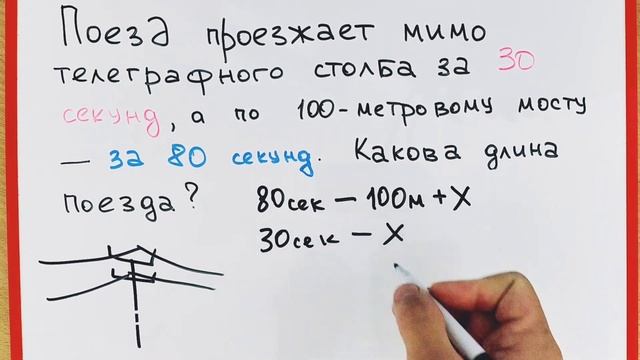 Поезд проезжает мимо
телеграфного столба за 30
секунд, а по 100-метровому мосту
— за 80 секунд. Какова длина
поезда?
80сек — 100м + X
30сек — X